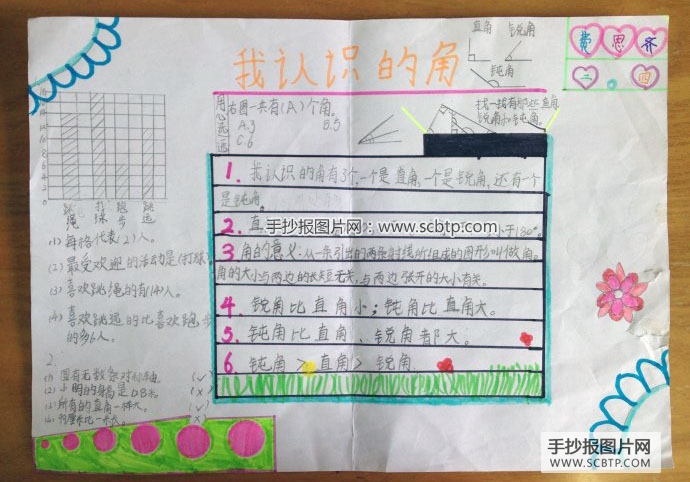 我认识的角
直角 锐角
钝角
费思齐
二.四
用心选一选
右图一共有(A)个角。
A.3 B.5
C.6
找一找有那些直角
锐角和钝角。
1. 我认识的角有3个,一个是直角,一个是锐角,还有一个
是钝角。
2. 直
小于180°
3 角的意义:从一条引出的两条射线所组成的图形叫做角。
角的大小与两边的长短无关,与两边张开的大小有关。
4. 锐角比直角小;钝角比直角大。
5. 钝角比直角、锐角都大。
6. 钝角>直角>锐角
跳绳 打球 跑步 跳远
(1) 每格代表(2)人。
(2) 最受欢迎的活动是(打球)
(3) 喜欢跳绳的有(14)人。
(4) 喜欢跳远的比喜欢跑步
的多6人。
2.
(1) 圆有无数条对称轴。 (√)
(2) 小明的身高是 (×)
(3) 所有的直角一样大。 (√)
(4) 99厘米比一米大。 (×)
手抄报图片网 - www.scbtp.com
手抄报图片网
WWW.SCBTP.COM